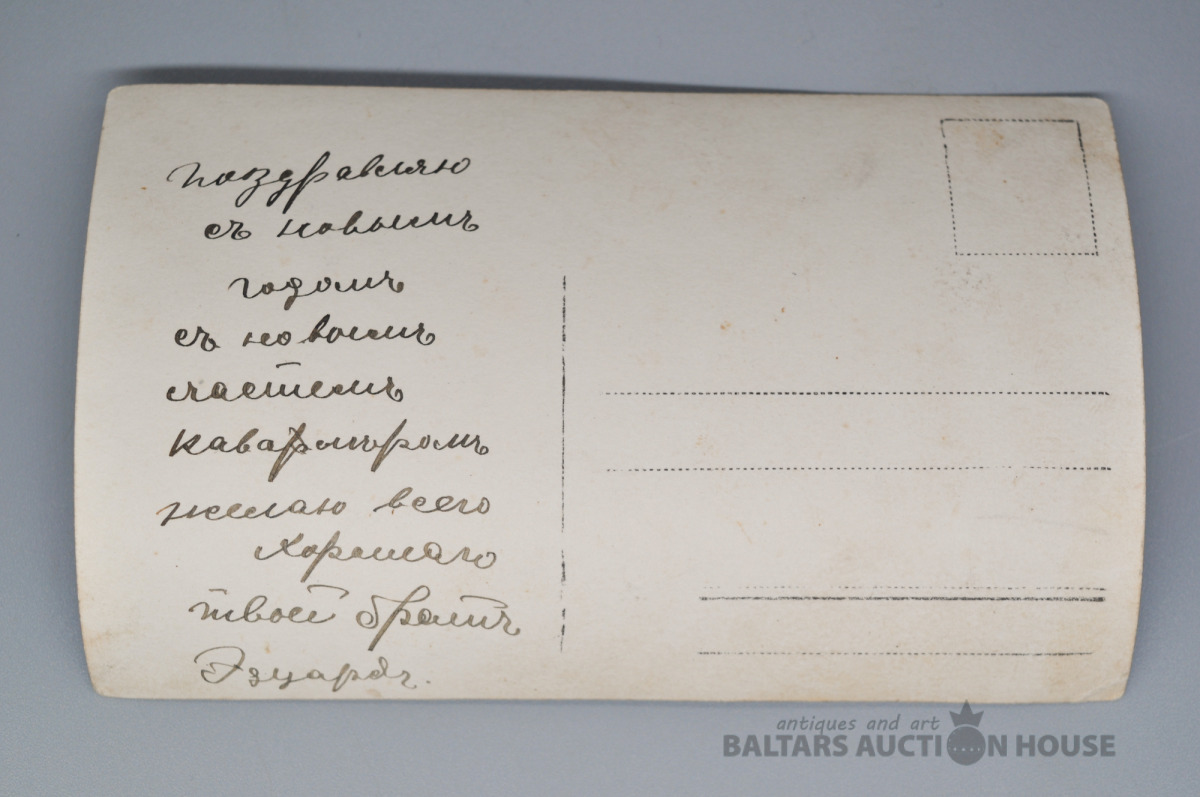 поздравляю
съ новымъ
годомъ
съ новымъ
счастемъ
желаю всего
хорошаго
твой братъ
Эдуардъ.
antiques and art
BALTARS AUCTION HOUSE